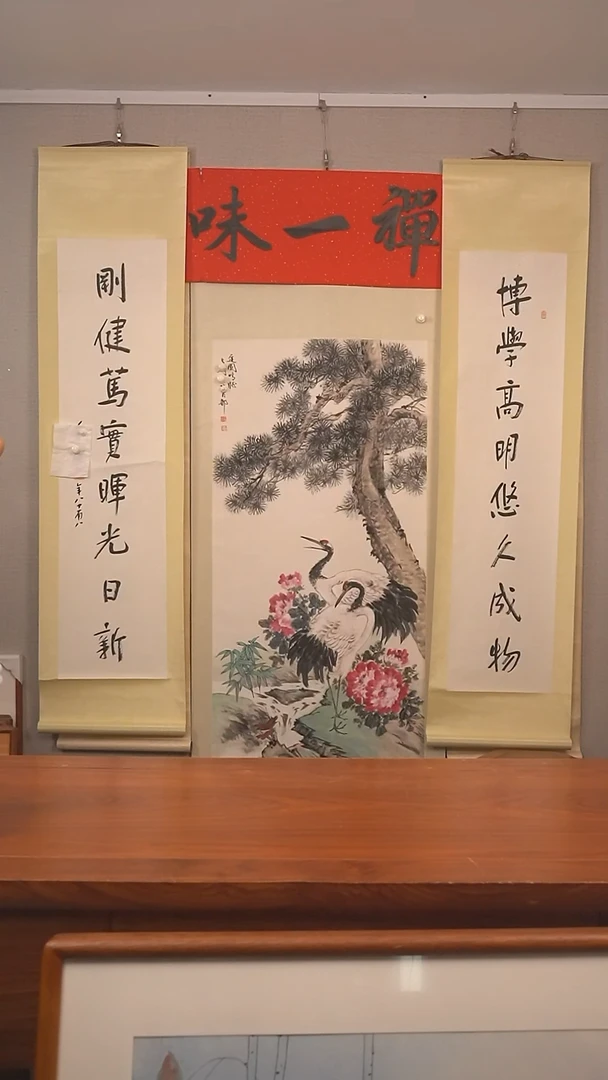 禪一味
博學高明悠久成物
剛健篤實暉光日新